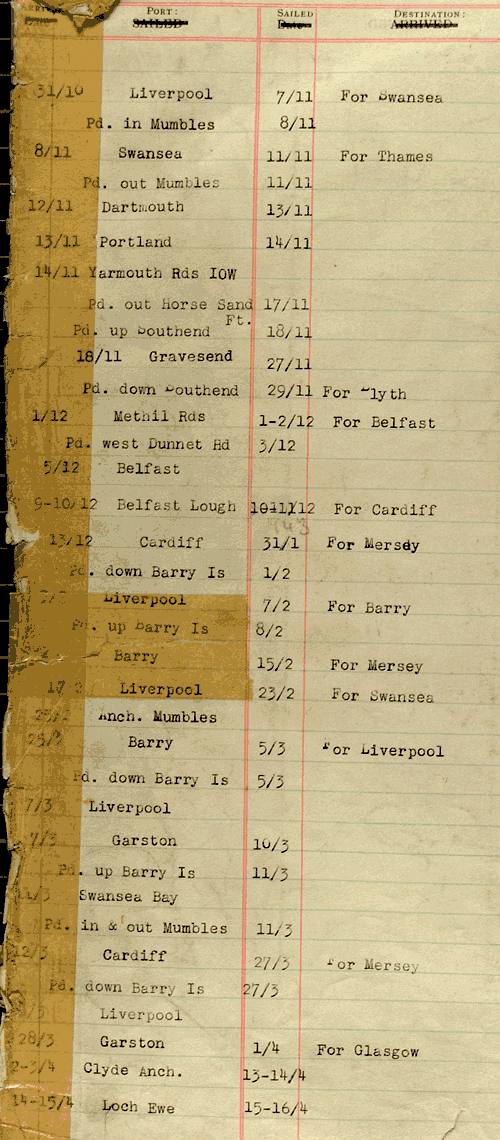 PORT: SAILED DESTINATION:
SAILED Date ARRIVED
31/10 Liverpool 7/11 For Swansea
Pd. in Mumbles 8/11
8/11 Swansea 11/11 For Thames
Pd. out Mumbles 11/11
12/11 Dartmouth 13/11
13/11 Portland 14/11
14/11 Yarmouth Rds IOW
Pd. out Horse Sand 17/11
Ft.
Pd. up Southend 18/11
18/11 Gravesend 27/11
Pd. down Southend 29/11 For Blyth
1/12 Methil Rds 1-2/12 For Belfast
Pd. west Dunnet Hd 3/12
5/12 Belfast
9-10/12 Belfast Lough 10-11/12 For Cardiff
43
13/12 Cardiff 31/1 For Mersey
Pd. down Barry Is 1/2
Liverpool 7/2 For Barry
Pd. up Barry Is 8/2
Barry 15/2 For Mersey
17 2 Liverpool 23/2 For Swansea
25/2 Anch. Mumbles
25/2 Barry 5/3 For Liverpool
Pd. down Barry Is 5/3
7/3 Liverpool
7/3 Garston 10/3
Pd. up Barry Is 11/3
11/3 Swansea Bay
Pd. in & out Mumbles 11/3
12/3 Cardiff 27/3 For Mersey
Pd. down Barry Is 27/3
Liverpool
28/3 Garston 1/4 For Glasgow
2-3/4 Clyde Anch. 13-14/4
14-15/4 Loch Ewe 15-16/4